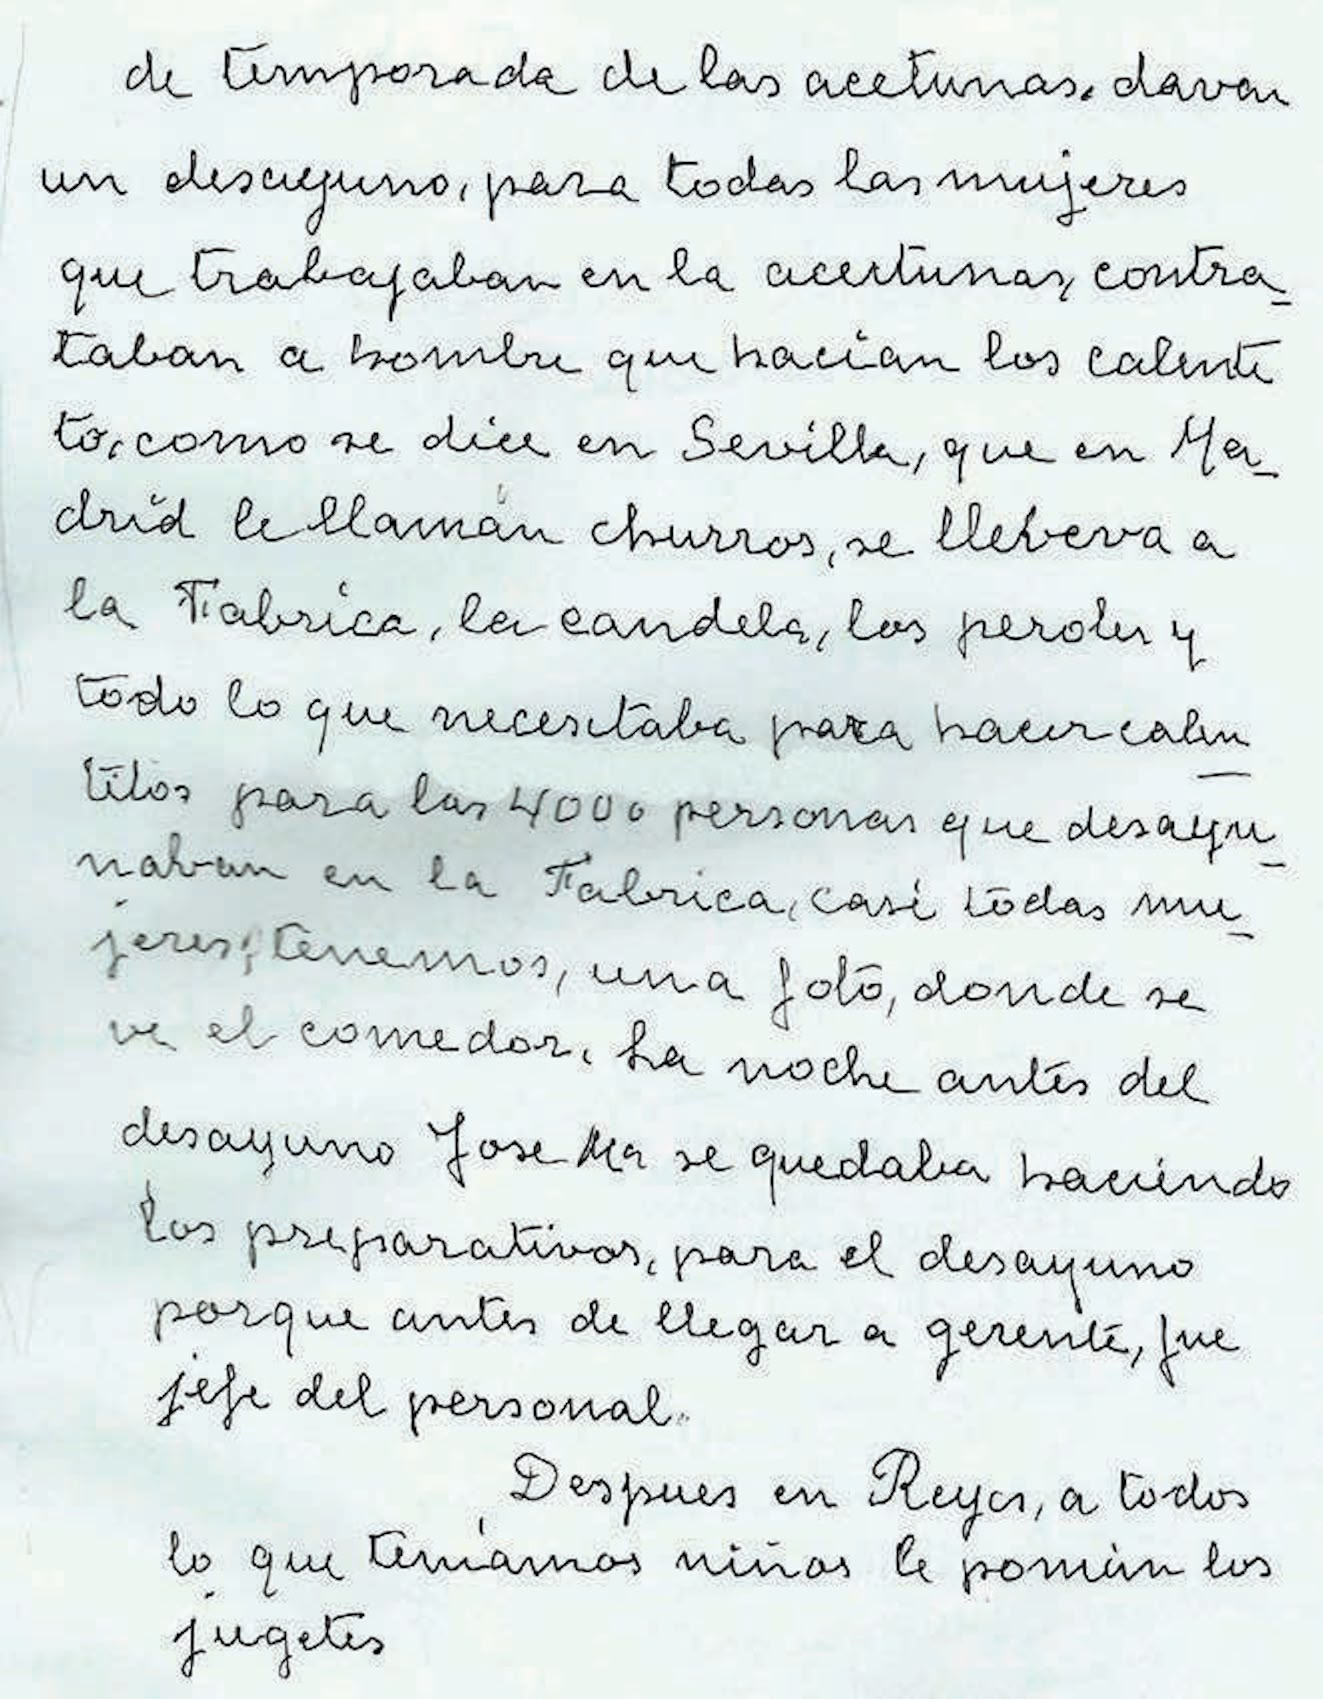 de temporada de las acetunas. davan
un desayuno, para todas las mujeres
que trabajaban en la acertunas, contra_
taban a hombre que hacían los calente
to, como se dice en Sevilla, que en Ma_
drid le llamán churros, se llebeva a
la Fabrica, la candela, los peroles y
todo lo que necesitaba para hacer calen_
titos para las 4000 personas que desayu_
navan en la Fabrica, casi todas mu_
jeres, tenemos, una foto, donde se
ve el comedor. La noche antes del
desayuno Jose Ma se quedaba haciendo
los preparativos, para el desayuno
porque antes de llegar a gerente, fue
jefe del personal.
Despues en Reyes, a todos
lo que teníamos niños le ponían los
jugetes